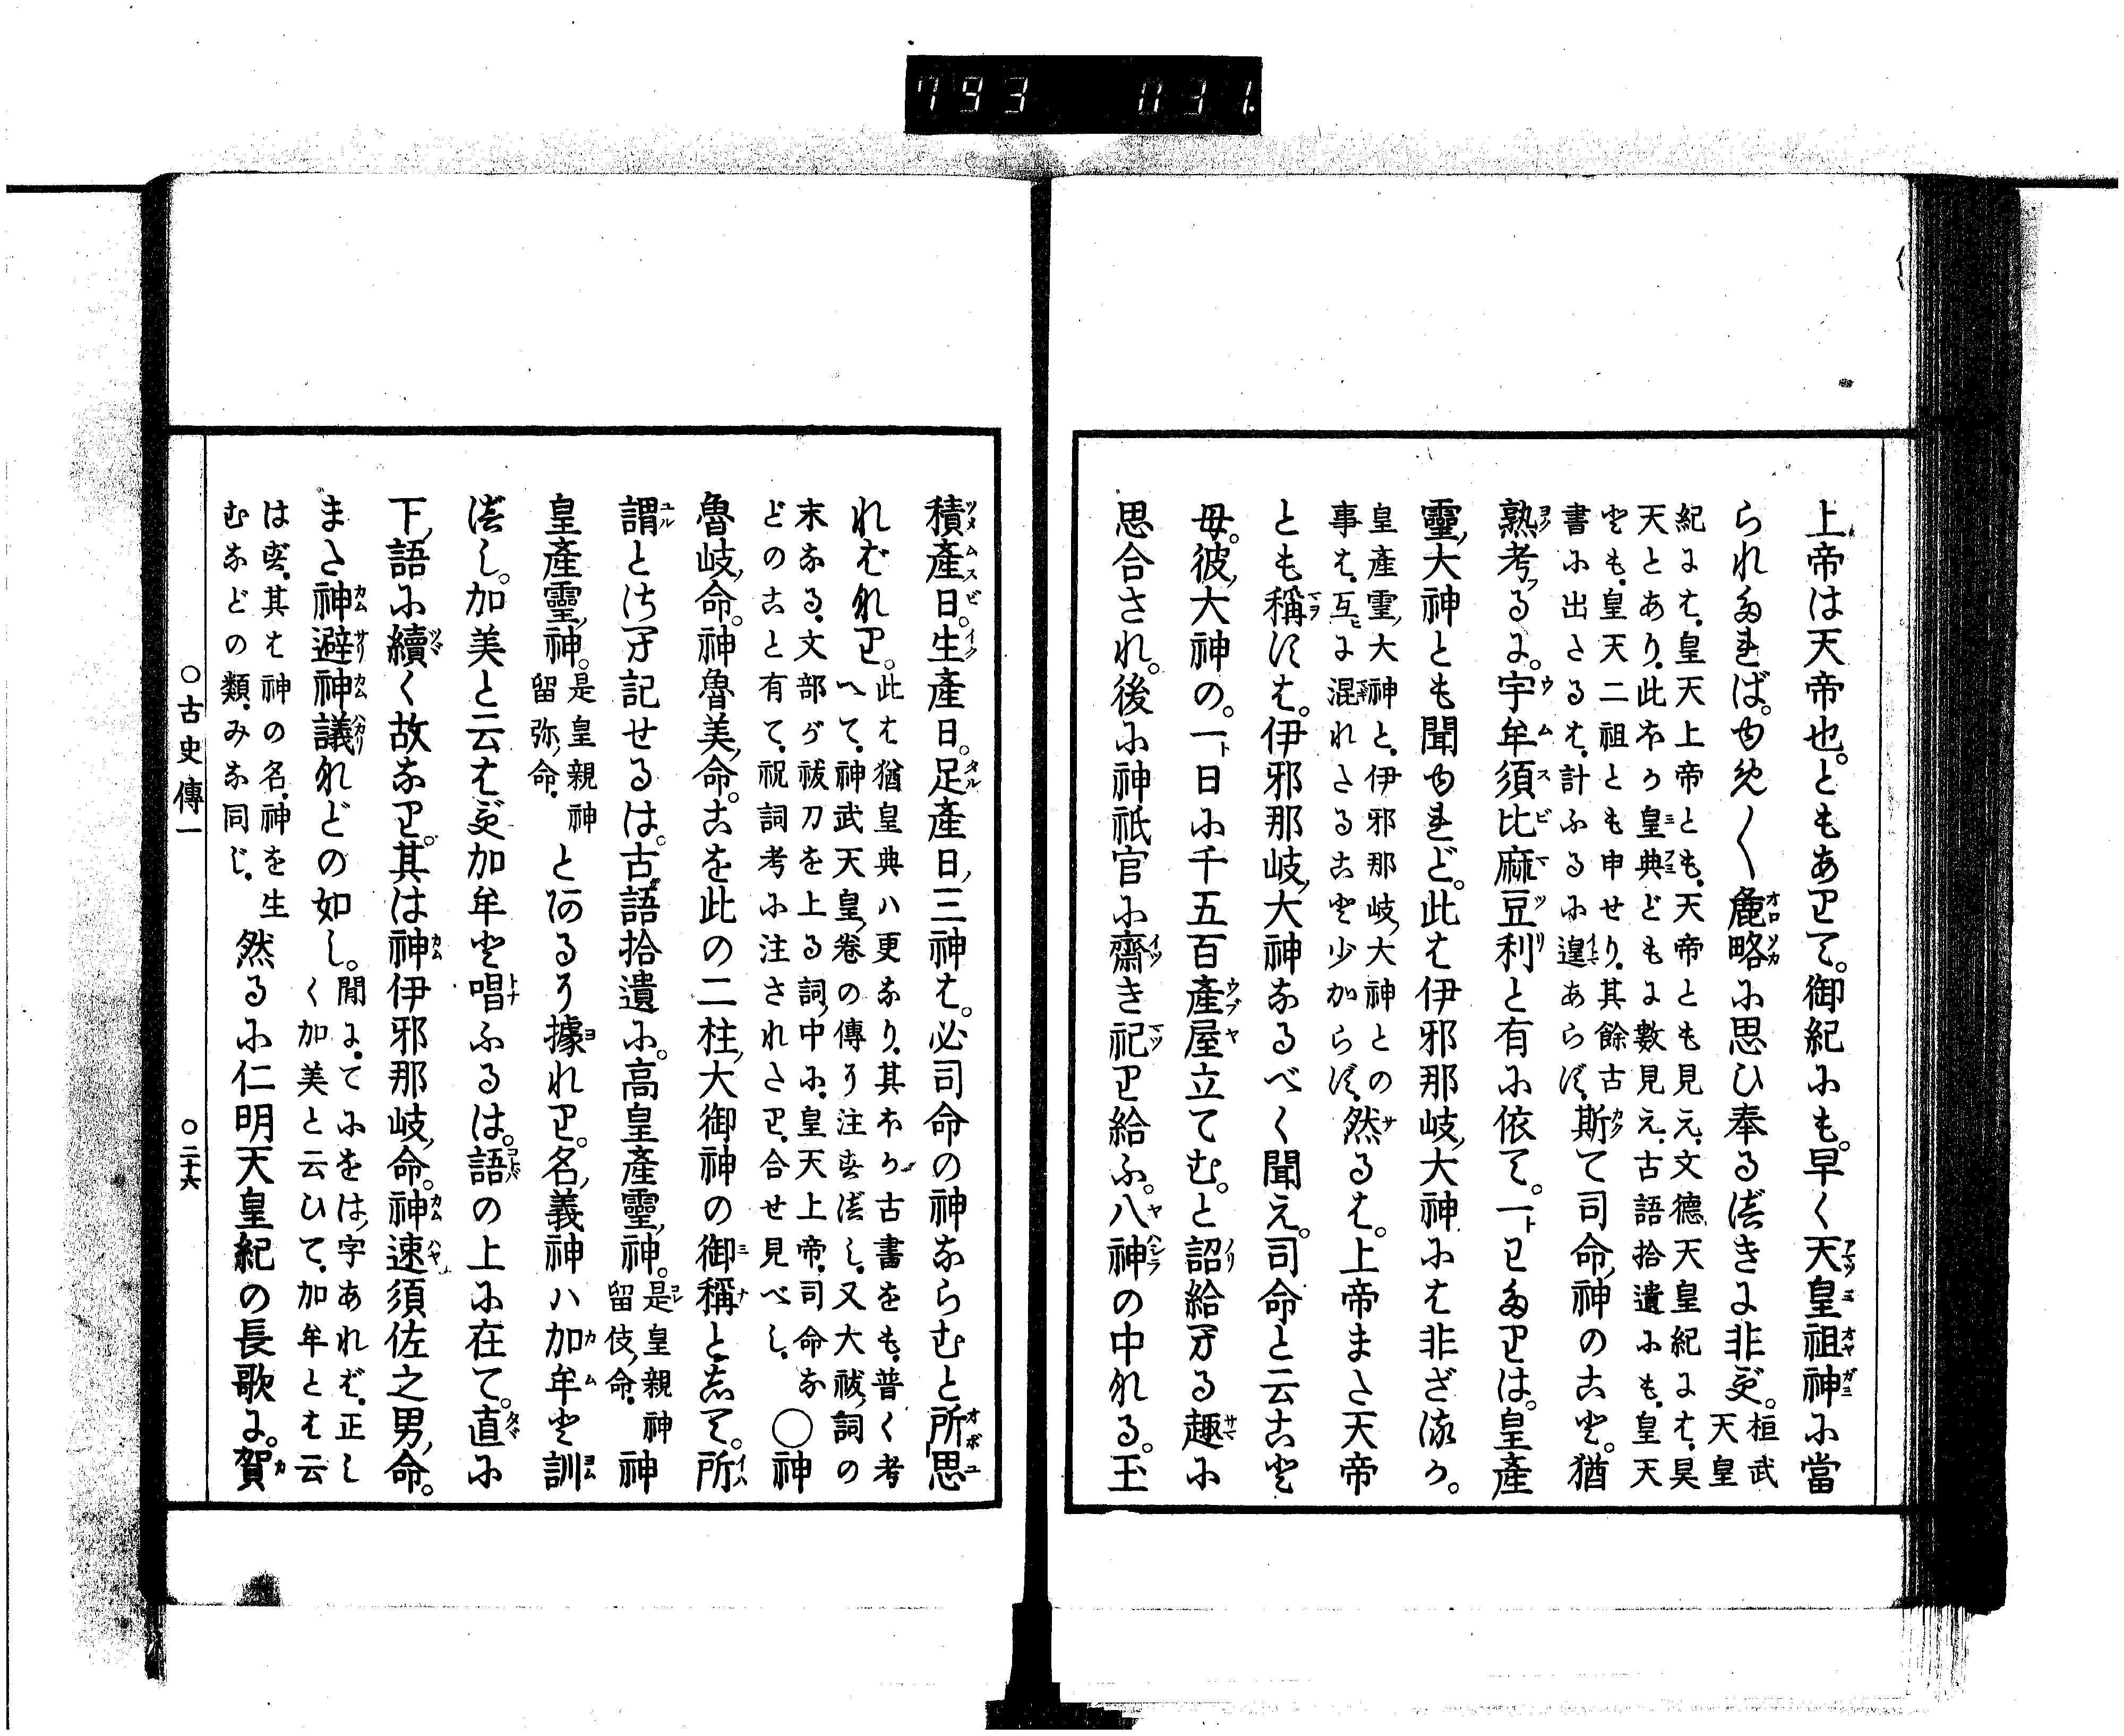 793 031.
上帝は天帝也。ともありて。御紀にも。早く天皇祖神に當
られたれば。ゆめ〱麁略に思ひ奉るべきに非ず。桓武天皇
紀には、皇天上帝とも、天帝とも見え、文德天皇紀には、昊
天とあり、此ほか皇典どもに數見え、古語拾遺にも、皇天
とも、皇天二祖とも申せり、其餘古
書に出たるは、計ふるに遑あらず、斯て司命神のこと。猶
熟考るに。宇牟須比麻豆利と有に依て。一わたりは。皇產
靈大神とも聞ゆれど。此は伊邪那岐大神には非ざるか。
皇產靈大神と、伊邪那岐大神との
事は、互に混れたること少からず、然るは。上帝また天帝
とも稱すは。伊邪那岐大神なるべく聞え。司命と云こと
毋。彼大神の。一日に千五百產屋立てむ。と詔給へる趣に
思合され。後に神祇官に齋き祀り給ふ。八神の中なる。玉
積產日。生產日。足產日三神は。必司命の神ならむと所思
ればなり。此は猶皇典ハ更なり、其ほか古書をも、普く考
へて、神武天皇卷の傳に注すべし、又大祓詞の
末なる、文部が祓刀を上る詞中に、皇天上帝、司命な
どのこと有て、祝詞考に注されたり、合せ見べし、○神
魯岐命。神魯美命。こを此の二柱大御神の御稱として。所
謂とは可記せるは。古語拾遺に。高皇產靈神。是皇親神神留伎命、
皇產靈神。是皇親神留弥命、とあるに據れり。名義神ハ加牟と訓
べし。加美と云はず加牟と唱ふるは。語の上に在て。直に
下語に續く故なり。其は神伊邪那岐命。神速須佐之男命。
また神避神議などの如し。閒に、てにをは字あれば、正し
く加美と云ひて、加牟とは云
はず、其は神の名、神を生
むなどの類、みな同じ、然るに仁明天皇紀の長歌に。賀
○古史傳一 ○二十六